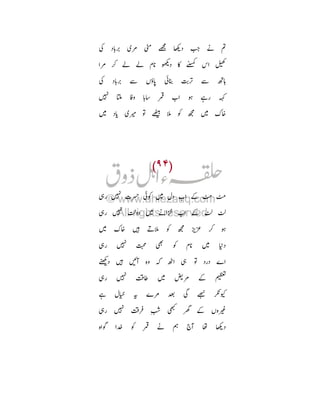 تم نے جب دیکھا مجھے مٹی مری برباد کی
کھیل اس کمسن کا دیکھو نام لے لے کر مرا
ہاتھ سے تربت بنائی پاؤں سے برباد کی
کہہ رہے ہو اب قمر سا با وفا ملتا نہیں
خاک میں مجھ کو ملا بیٹھے تو میری یاد کی
(۹۴)
مٹ مٹ کے اب دل میں کوئی حسرت نہیں رہی
لٹ لٹ کے اب خزانے میں دولت نہیں رہی
ہو کر عزیز مجھ کو ملاتے ہیں خاک میں
دنیا میں نام کو بھی محبت نہیں رہی
اے درد تو ہی اٹھ کہ وہ آئیں ہیں دیکھنے
تعظیم کے مریض میں طاقت نہیں رہی
کیونکر نبھے گی بعد مرے یہ خیال ہے
غیروں کے گھر کبھی شبِ فرقت نہیں رہی
دیکھا تھا آج ہم نے قمر کو خدا گواہ
حلقہء اہل ذوق